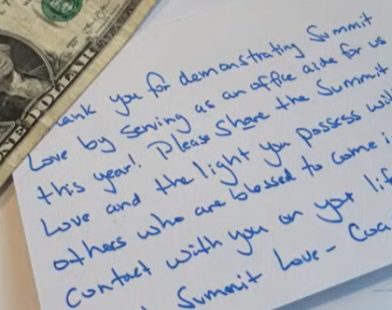 ONE DOLLAR
ank you for demonstrating Summit
Love by serving as an office aide for us
this year! Please Share the Summit
Love and the light you possess with
others who are blessed to come i
contact with you on your lif
Summit Love - Coa